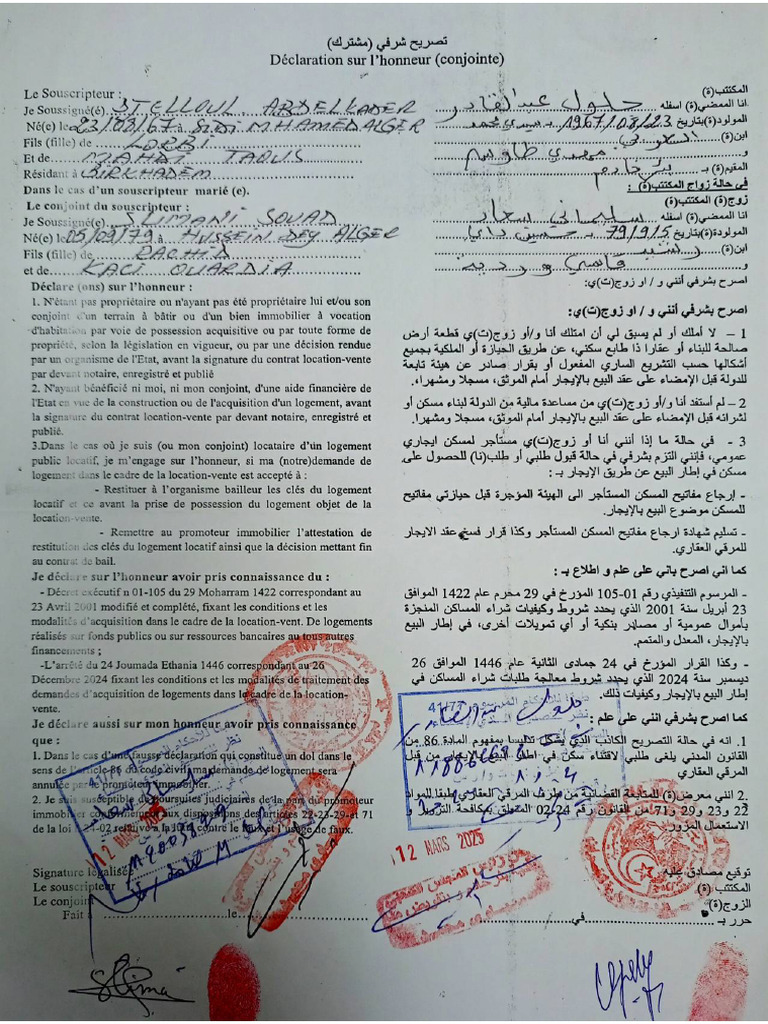 تصريح شرفي (مشترك)
Déclaration sur l'honneur (conjointe)
Le Souscripteur :
Je Soussigné(é) STELLOUL ABDELKADER
Né(e) le 23/03/67 à SIDI MHAMED ALGER
Fils (fille) de LORBI
Et de MAHDI TAOUS
Résidant à BIRKHADEM
Dans le cas d'un souscripteur marié (e).
Le conjoint du souscripteur :
Je Soussigné(e) SLIMANI SOUAD
Né(e) le 05/09/79 à HUSSEIN DEY ALGER
Fils (fille) de RACHID
et de KACI OUARDIA
Déclare (ons) sur l'honneur :
1. N'étant pas propriétaire ou n'ayant pas été propriétaire lui et/ou son
conjoint d'un terrain à bâtir ou d'un bien immobilier à vocation
d'habitation par voie de possession acquisitive ou par toute forme de
propriété, selon la législation en vigueur, ou par une décision rendue
par un organisme de l'Etat, avant la signature du contrat location-vente
par devant notaire, enregistré et publié
2. N'ayant bénéficié ni moi, ni mon conjoint, d'une aide financière de
l'Etat en vue de la construction ou de l'acquisition d'un logement, avant
la signature du contrat location-vente par devant notaire, enregistré et
publié.
3.Dans le cas où je suis (ou mon conjoint) locataire d'un logement
public locatif, je m'engage sur l'honneur, si ma (notre)demande de
logement dans le cadre de la location-vente est accepté à :
- Restituer à l'organisme bailleur les clés du logement
locatif et ce avant la prise de possession du logement objet de la
location-vente.
- Remettre au promoteur immobilier l'attestation de
restitution des clés du logement locatif ainsi que la décision mettant fin
au contrat de bail.
Je déclare sur l'honneur avoir pris connaissance du :
- Décret exécutif n 01-105 du 29 Moharram 1422 correspondant au
23 Avril 2001 modifié et complété, fixant les conditions et les
modalités d'acquisition dans le cadre de la location-vent. De logements
réalisés sur fonds publics ou sur ressources bancaires au tous autres
financements ;
-L'arrêté du 24 Joumada Ethania 1446 correspondant au 26
Décembre 2024 fixant les conditions et les modalités de traitement des
demandes d'acquisition de logements dans le cadre de la location-
vente.
Je déclare aussi sur mon honneur avoir pris connaissance
que :
1. Dans le cas d'une fausse déclaration qui constitue un dol dans le
sens de l'article 86 du code civil ma demande de logement sera
annulée par le promoteur immobilier.
2. Je suis susceptible de poursuites judiciaires de la part du promoteur
immobilier conformément aux dispositions des articles 22-23-29 et 71
de la loi 24-02 relative à la lutte contre le faux et l'usage de faux.
Signature légalisée
Le souscripteur
Le conjoint
Fait à le
المكتتب(ة)
انا الممضي(ة) اسفله حلول عبد القادر
المولود(ة)بتاريخ 1967/03/23 بـ سيدي محمد
ابن(ة)
و مهدي طاوس
المقيم(ة) بـ بئر خادم
في حالة زواج المكتتب(ة) :
زوج(ة) المكتتب(ة)
انا الممضي(ة) اسفله سليماني سعاد
المولودة(ة)بتاريخ 79/9/5 بـ حسين داي
ابن(ة) رشيد
و قاسي وردية
اصرح بشرفي أنني و / او زوج(ت)ي:
اصرح بشرفي أنني و / او زوج(ت)ي:
1 – لا أملك أو لم يسبق لي أن امتلك أنا و/أو زوج(ت)ي قطعة أرض
صالحة للبناء أو عقارا ذا طابع سكني، عن طريق الحيازة أو الملكية بجميع
أشكالها حسب التشريع الساري المفعول أو بقرار صادر عن هيئة تابعة
للدولة قبل الإمضاء على عقد البيع بالإيجار أمام الموثق، مسجلا ومشهرا.
2 – لم أستفد أنا و/أو زوج(ت)ي من مساعدة مالية من الدولة لبناء مسكن أو
لشرائه قبل الإمضاء على عقد البيع بالإيجار أمام الموثق، مسجلا ومشهرا.
3 - في حالة ما إذا أنني أنا أو زوج(ت)ي مستأجر لمسكن ايجاري
عمومي، فإنني التزم بشرفي في حالة قبول طلبي أو طلب(نا) للحصول على
مسكن في إطار البيع عن طريق الإيجار بـ :
- إرجاع مفاتيح المسكن المستأجر الى الهيئة المؤجرة قبل حيازتي مفاتيح
للمسكن موضوع البيع بالإيجار.
- تسليم شهادة ارجاع مفاتيح المسكن المستأجر وكذا قرار فسخ عقد الايجار
للمرقي العقاري.
كما اني اصرح باني على علم و اطلاع بـ :
- المرسوم التنفيذي رقم 01-105 المؤرخ في 29 محرم عام 1422 الموافق
23 أبريل سنة 2001 الذي يحدد شروط وكيفيات شراء المساكن المنجزة
بأموال عمومية أو مصادر بنكية أو أي تمويلات أخرى، في إطار البيع
بالإيجار، المعدل والمتمم.
- وكذا القرار المؤرخ في 24 جمادى الثانية عام 1446 الموافق 26
ديسمبر سنة 2024 الذي يحدد شروط معالجة طلبات شراء المساكن في
إطار البيع بالايجار وكيفيات ذلك.
كما اصرح بشرفي انني على علم :
1. انه في حالة التصريح الكاذب الذي يشكل تدليسا بمفهوم المادة 86 من
القانون المدني يلغى طلبي لاقتناء سكن في اطار البيع بالايجار من قبل
المرقي العقاري
2. انني معرض(ة) للمتابعة القضائية من طرف المرقي العقاري طبقا للمواد
22 و23 و29 و71 من القانون رقم 24-02 المتعلق بمكافحة التزوير و
الاستعمال المزور.
توقيع مصادق عليه
المكتتب(ة)
الزوج(ة)
حرر بـ في
12 MARS 2025
12 MARS 2025